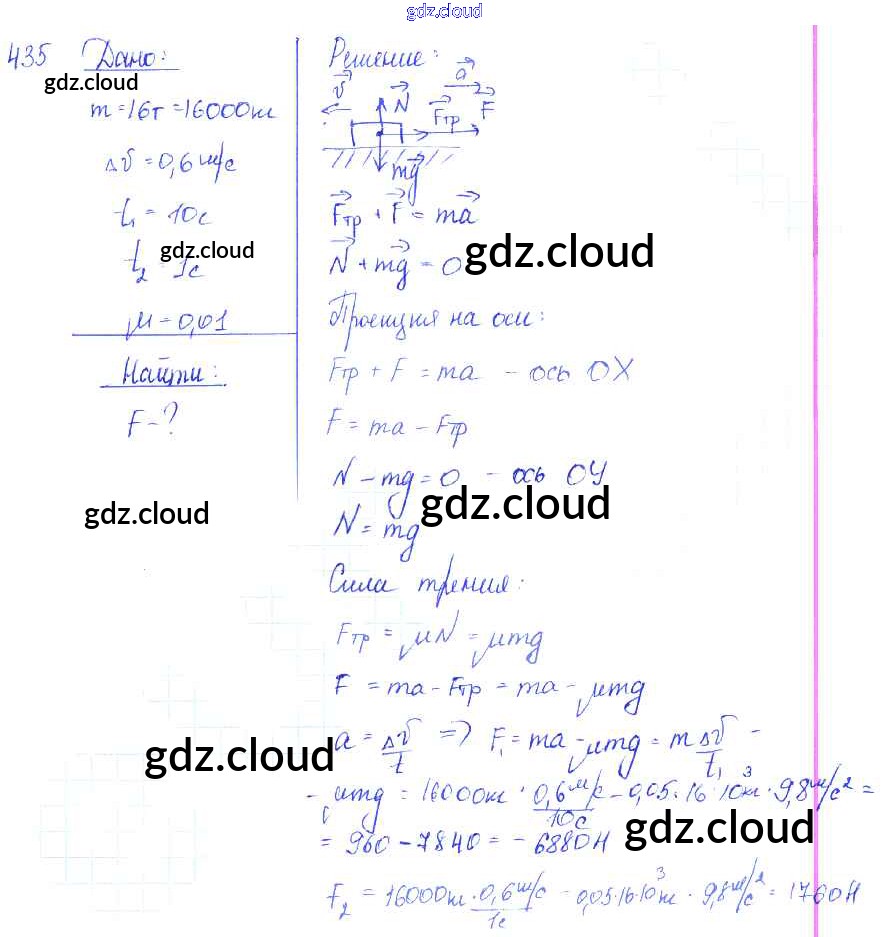 gdz.cloud
435 Дано:
gdz.cloud
m=16т=16000кг
Δv=0,6м/с
t₁ = 10с
t₂ = 1с
gdz.cloud
μ=0,01
Найти:
F-?
gdz.cloud
Решение:
v N a Fтр F
mg
Fтр + F = ma
N + mg = 0
gdz.cloud
Проекция на оси:
Fтр + F = ma - ось OX
F = ma - Fтр
N - mg = 0 - ось ОУ
gdz.cloud
N = mg
Сила трения:
Fтр = μN = μmg
F = ma - Fтр = ma - μmg
a = Δv/t => F₁ = ma - μmg = m Δv/t₁ -
gdz.cloud
- μmg = 16000кг · 0,6м/с/10с - 0,05·16·10³кг·9,8м/с² =
gdz.cloud
= 960 - 7840 = - 6880Н
F₂ = 16000кг · 0,6м/с/1с - 0,05·16·10³кг · 9,8м/с² = 1760Н